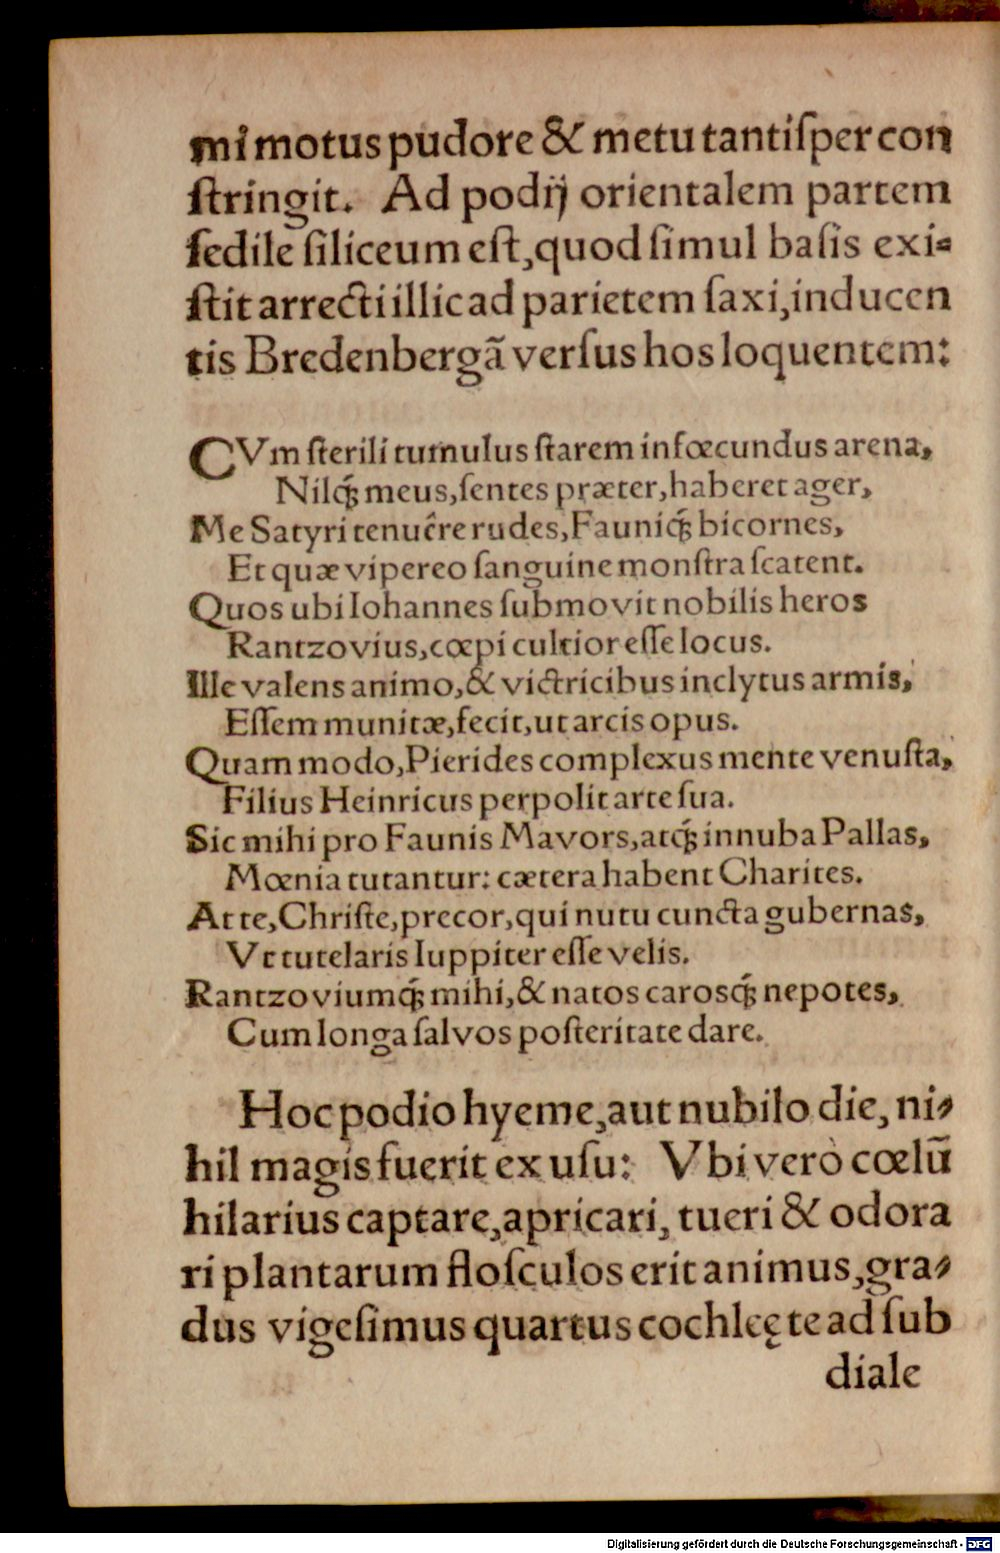 mi motus pudore & metu tantiſper con
ſtringit. Ad podij orientalem partem
ſedile ſiliceum eſt, quod ſimul baſis exi-
ſtit arrecti illic ad parietem ſaxi, inducen
tis Bredenbergã verſus hos loquentem:
CVm ſterili tumulus ſtarem infœcundus arena,
Nilq́; meus, ſentes præter, haberet ager,
Me Satyri tenuêre rudes, Fauniq́; bicornes,
Et quæ vipereo ſanguine monſtra ſcatent.
Quos ubi Iohannes ſubmovit nobilis heros
Rantzovius, cœpi cultior eſſe locus.
Ille valens animo, & victricibus inclytus armis,
Eſſem munitæ, fecit, ut arcis opus.
Quam modo, Pierides complexus mente venuſta,
Filius Heinricus perpolit arte ſua.
Sic mihi pro Faunis Mavors, atq́; innuba Pallas,
Mœnia tutantur: cætera habent Charites.
At te, Chriſte, precor, qui nutu cuncta gubernas,
Vt tutelaris Iuppiter eſſe velis.
Rantzoviumq́; mihi, & natos carosq́; nepotes,
Cum longa ſalvos poſteritate dare.
Hoc podio hyeme, aut nubilo die, ni-
hil magis fuerit ex uſu: Vbi verò cœlũ
hilarius captare, apricari, tueri & odora
ri plantarum floſculos erit animus, gra-
dus vigeſimus quartus cochleę te ad ſub
diale
Digitalisierung gefördert durch die Deutsche Forschungsgemeinschaft - DFG